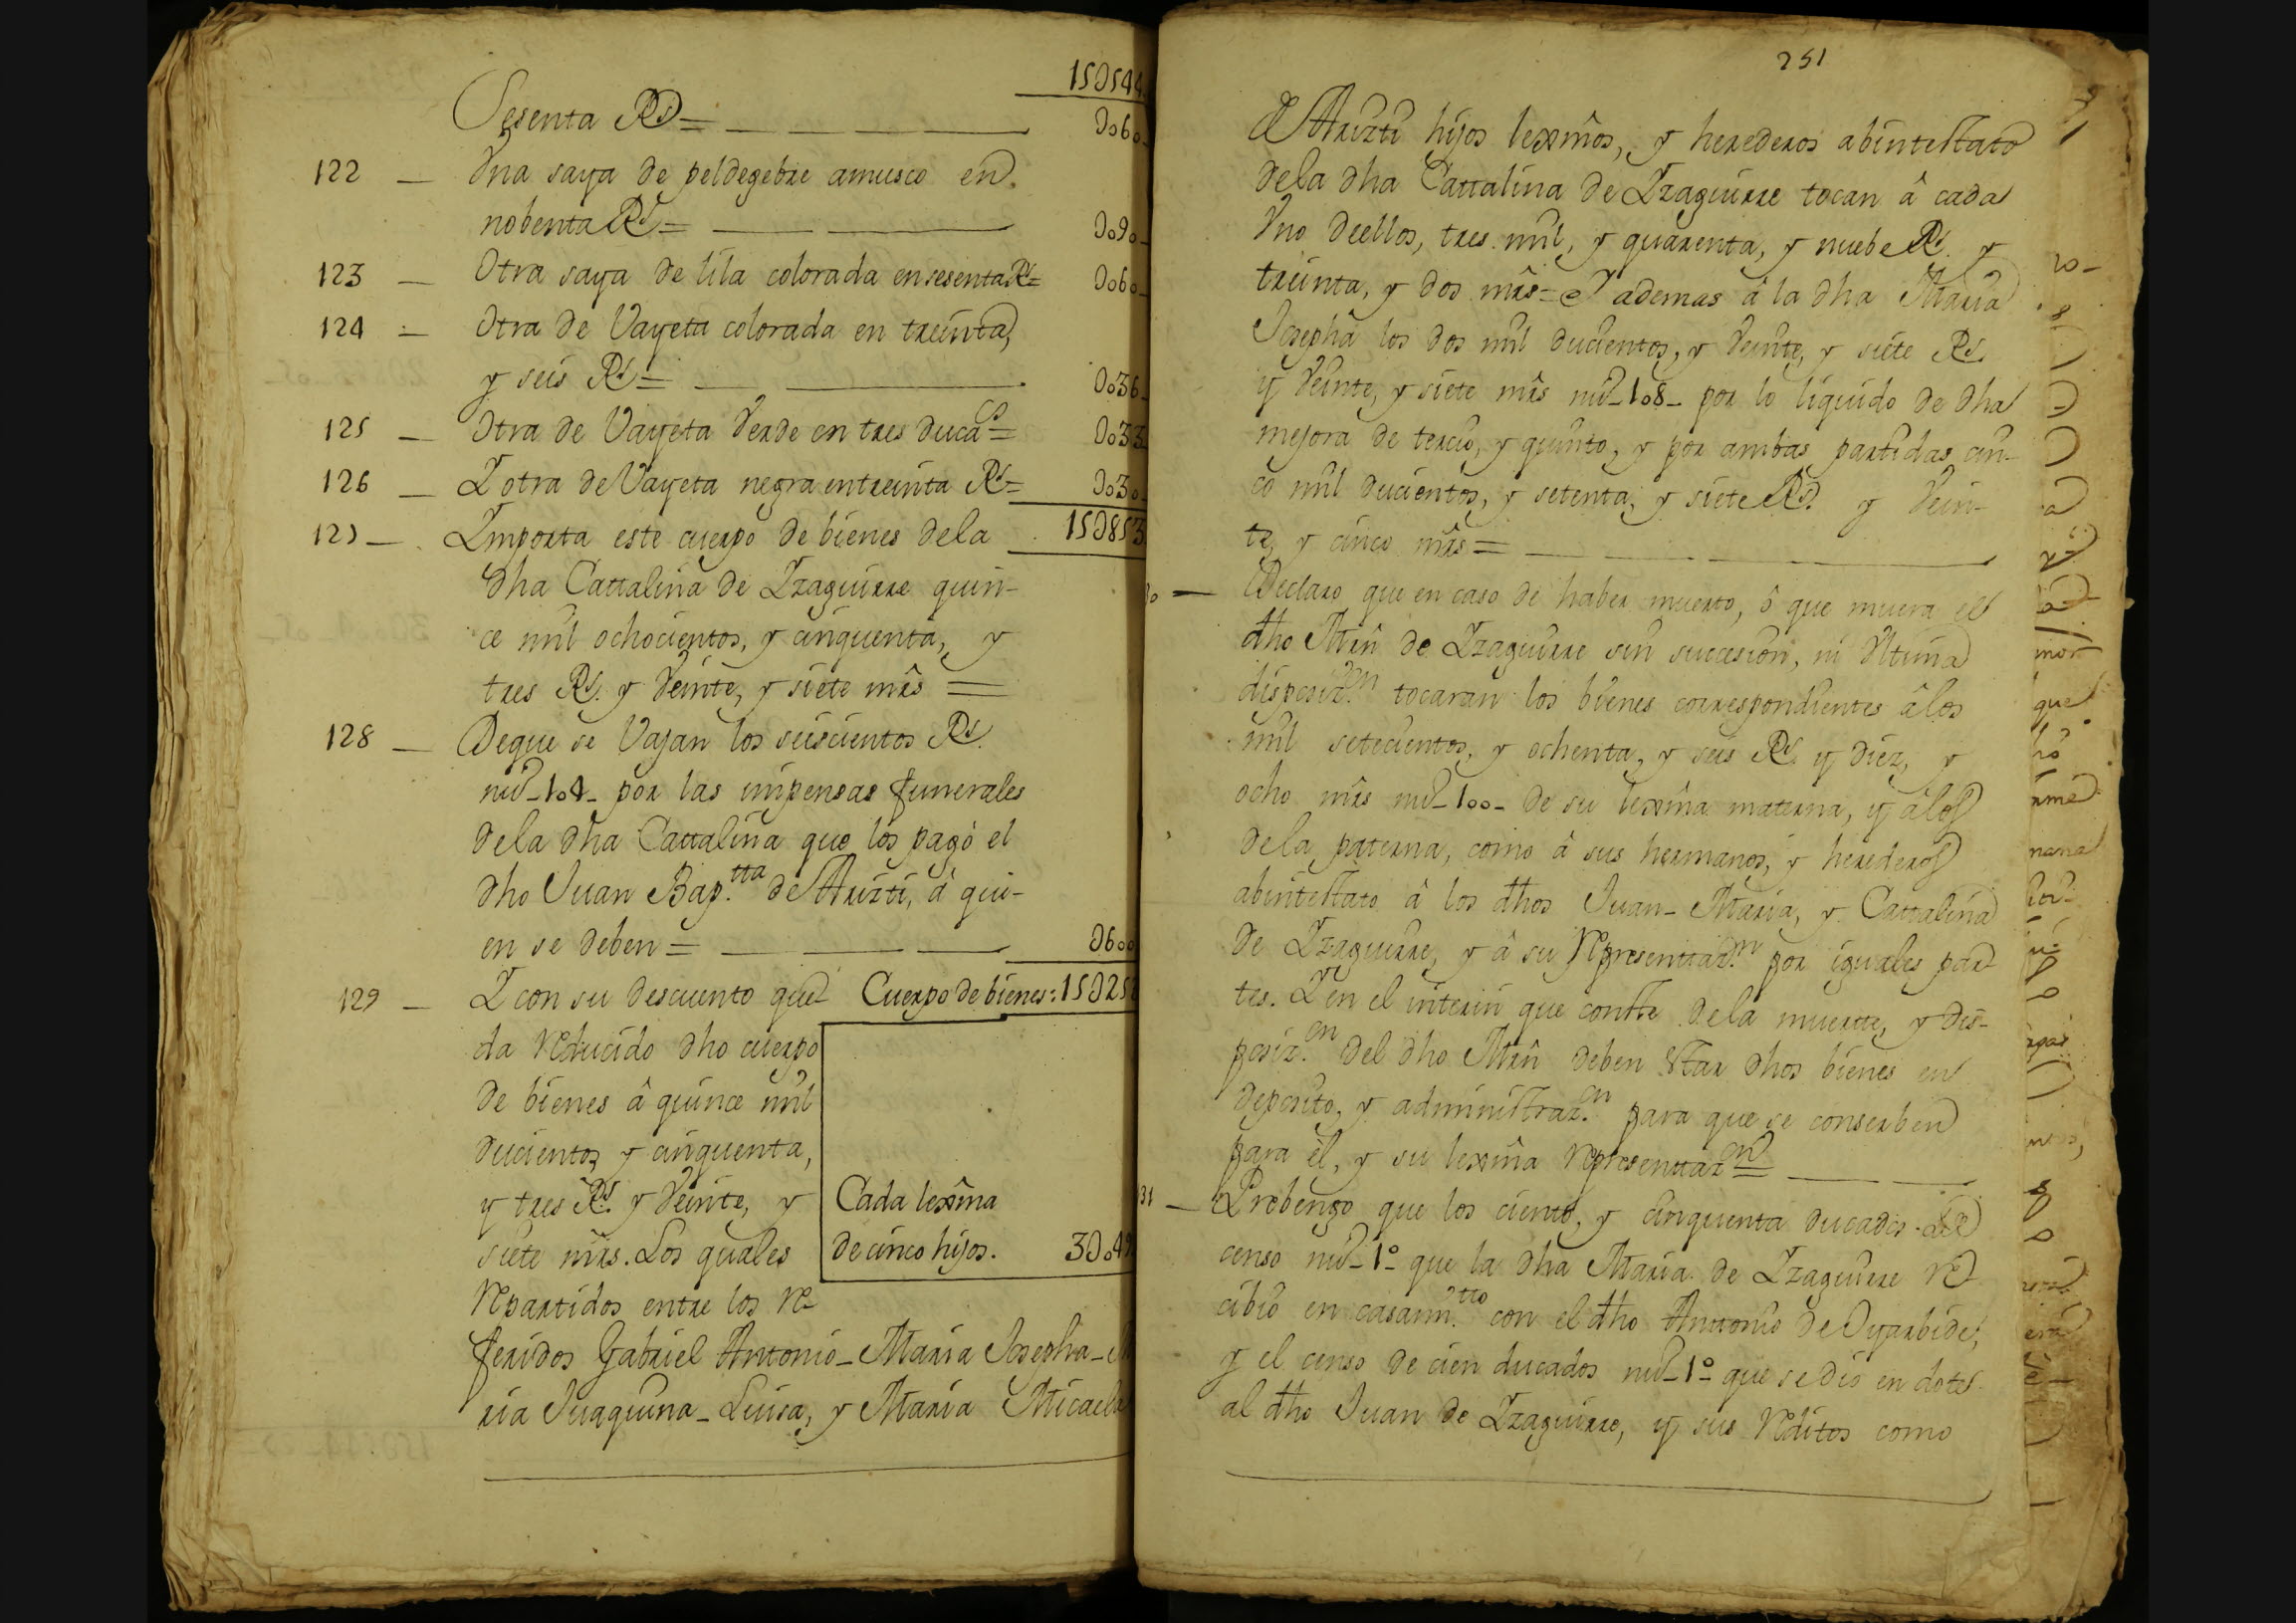 15U544
Sesenta Rs = 
U060
122 — Una saya de peldegebre amusco en
nobenta Rs = U090
123 — Otra saya de lila colorada en sesenta Rs = U060
124 — Otra de Vayeta colorada en treinta,
y seis Rs = U036
125 — Otra de Vayeta Verde en tres ducas = U033
126 — Y otra de Vayeta negra en treinta Rs = U030
127 — Importa este cuerpo de bienes dela 15U853
dha Cattalina de Yzaguirre quin-
ce mil ochocientos, y cinquenta, y
tres Rs. y Veinte, y siete mrs =
128 — Deque se Vajan los seiscientos Rs.
nu° 104 por las impensas funerales
dela dha Cattalina que los pagó el
dho Juan Bap.tta de Aruzti, â qui-
en se deben = U600
129 — Y con su descuento que- Cuerpo de bienes: 15U25
da reducido dho cuerpo
de bienes â quince mil
ducientos y cinquenta,
y tres Rs. y Veinte, y
siete mrs. Los quales
Cada lexma
de cinco hijos. 3U04
repartidos entre los re-
feridos Gabriel Antonio - Maria Josepha -
ria Juaquina - Luisa, y Maria Micaela
251
de Aruzti hijos lexmos, y herederos abintestato
dela dha Cattalina de Yzaguirre tocan â cada
Uno deellos, tres mil, y quarenta, y nuebe Rs. y
treinta, y dos mrs = Y ademas â la dha Maria
Josepha los dos mil ducientos, y Veinte, y siete Rs.
y Veinte, y siete mrs nu° 108 - por lo liquido de dha
mejora de tercio, y quinto, y por ambas partidas cin-
co mil ducientos, y setenta, y siete Rs. y Vein-
te, y cinco mrs =
Declaro que en caso de haber muerto, ô que muera el
dho Mrn de Yzaguirre sin sucesion, ni Ultima
disposiz.on tocaran los bienes correspondientes âlos
mil setecientos, y ochenta, y seis Rs. y diez, y
ocho mrs nu° 100 - de su lexma materna, y âlos
dela paterna, como â sus hermanos, y herederos
abintestato â los dhos Juan - Maria, y Cattalina
de Yzaguirre, y â su representaz.on por iguales par-
tes. Y en el interin que conste dela muerte, y dis-
posiz.on del dho Mrn deben Estar dhos bienes en
deposito, y administraz.on para que se conserben
para èl, y su lexma representaz.on =
31 — Prebengo que los ciento, y cinquenta ducados de
censo nu° 1° que la dha Maria de Yzaguirre re-
cibio en casam.tto con el dho Antonio de Oyarbide,
y el censo de cien ducados nu° 1° que se dio en dote
al dho Juan de Yzaguirre, y sus reditos como